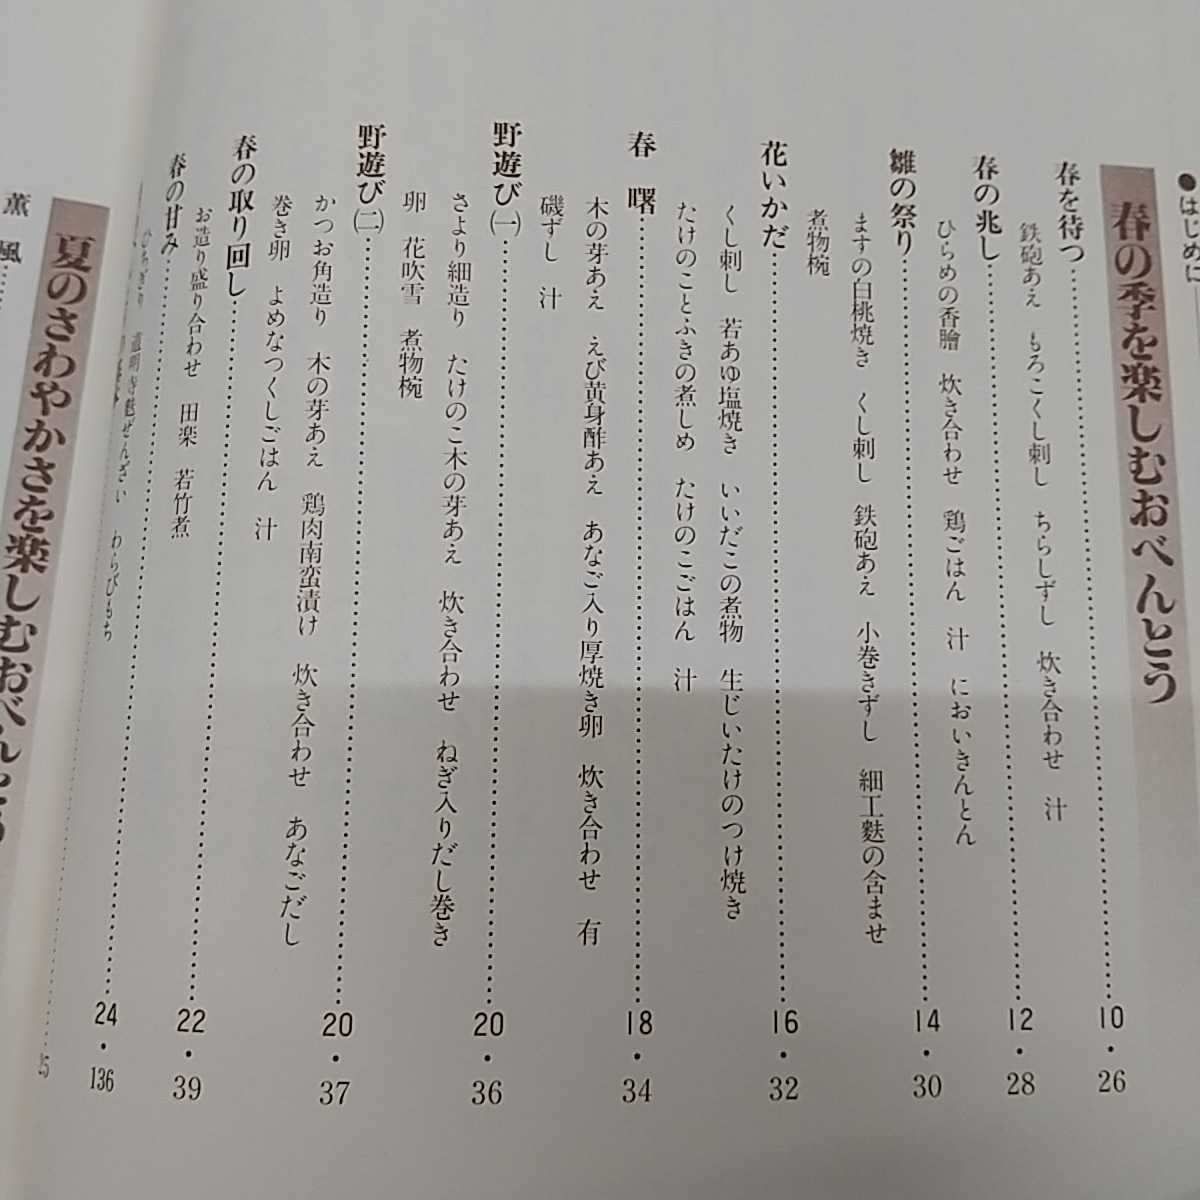 ●はじめに
春の季を楽しむおべんとう
春を待つ……10・26
鉄砲あえ　もろこくし刺し　ちらしずし　炊き合わせ　汁
春の兆し……12・28
ひらめの香膾　炊き合わせ　鶏ごはん　汁　においきんとん
雛の祭り……14・30
ますの白桃焼き　くし刺し　鉄砲あえ　小巻きずし　細工麩の含ませ
煮物椀
花いかだ……16・32
くし刺し　若あゆ塩焼き　いいだこの煮物　生じいたけのつけ焼き
たけのことふきの煮しめ　たけのこごはん　汁
春　曙……18・34
木の芽あえ　えび黄身酢あえ　あなご入り厚焼き卵　炊き合わせ　有
磯ずし　汁
野遊び㈠……20・36
さより細造り　たけのこ木の芽あえ　炊き合わせ　ねぎ入りだし巻き
卵　花吹雪　煮物椀
野遊び㈡……20・37
かつお角造り　木の芽あえ　鶏肉南蛮漬け　炊き合わせ　あなごだし
巻き卵　よめなつくしごはん　汁
春の取り回し……22・39
お造り盛り合わせ　田楽　若竹煮
春の甘み……24・136
ひちぎり　道明寺麩ぜんざい　わらびもち
25
夏のさわやかさを楽しむおべんとう
薫　風……